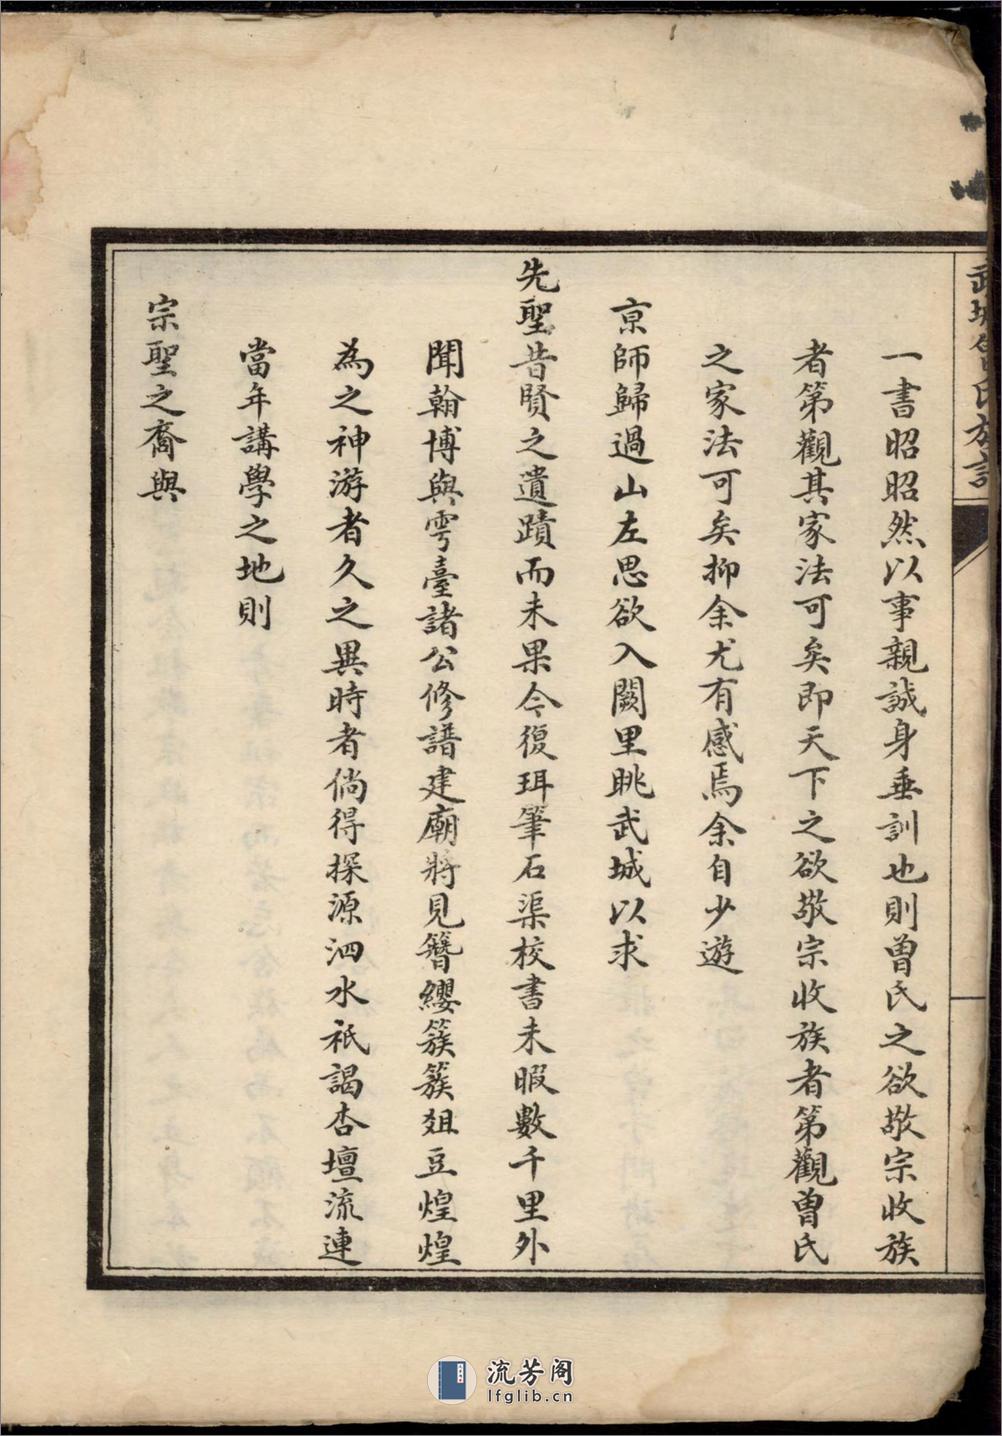 武城曾氏族譜
一書昭昭然以事親誠身垂訓也則曾氏之欲敬宗收族
者第觀其家法可矣即天下之欲敬宗收族者第觀曾氏
之家法可矣抑余尤有感焉余自少遊
京師歸過山左思欲入闕里眺武城以求
先聖昔賢之遺蹟而未果今復珥筆石渠校書未暇數千里外
聞翰博與雩臺諸公修譜建廟將見簪纓簇簇俎豆煌煌
為之神游者久之異時者倘得探源泗水祇謁杏壇流連
當年講學之地則
宗聖之裔與
流芳阁
lfglib.cn